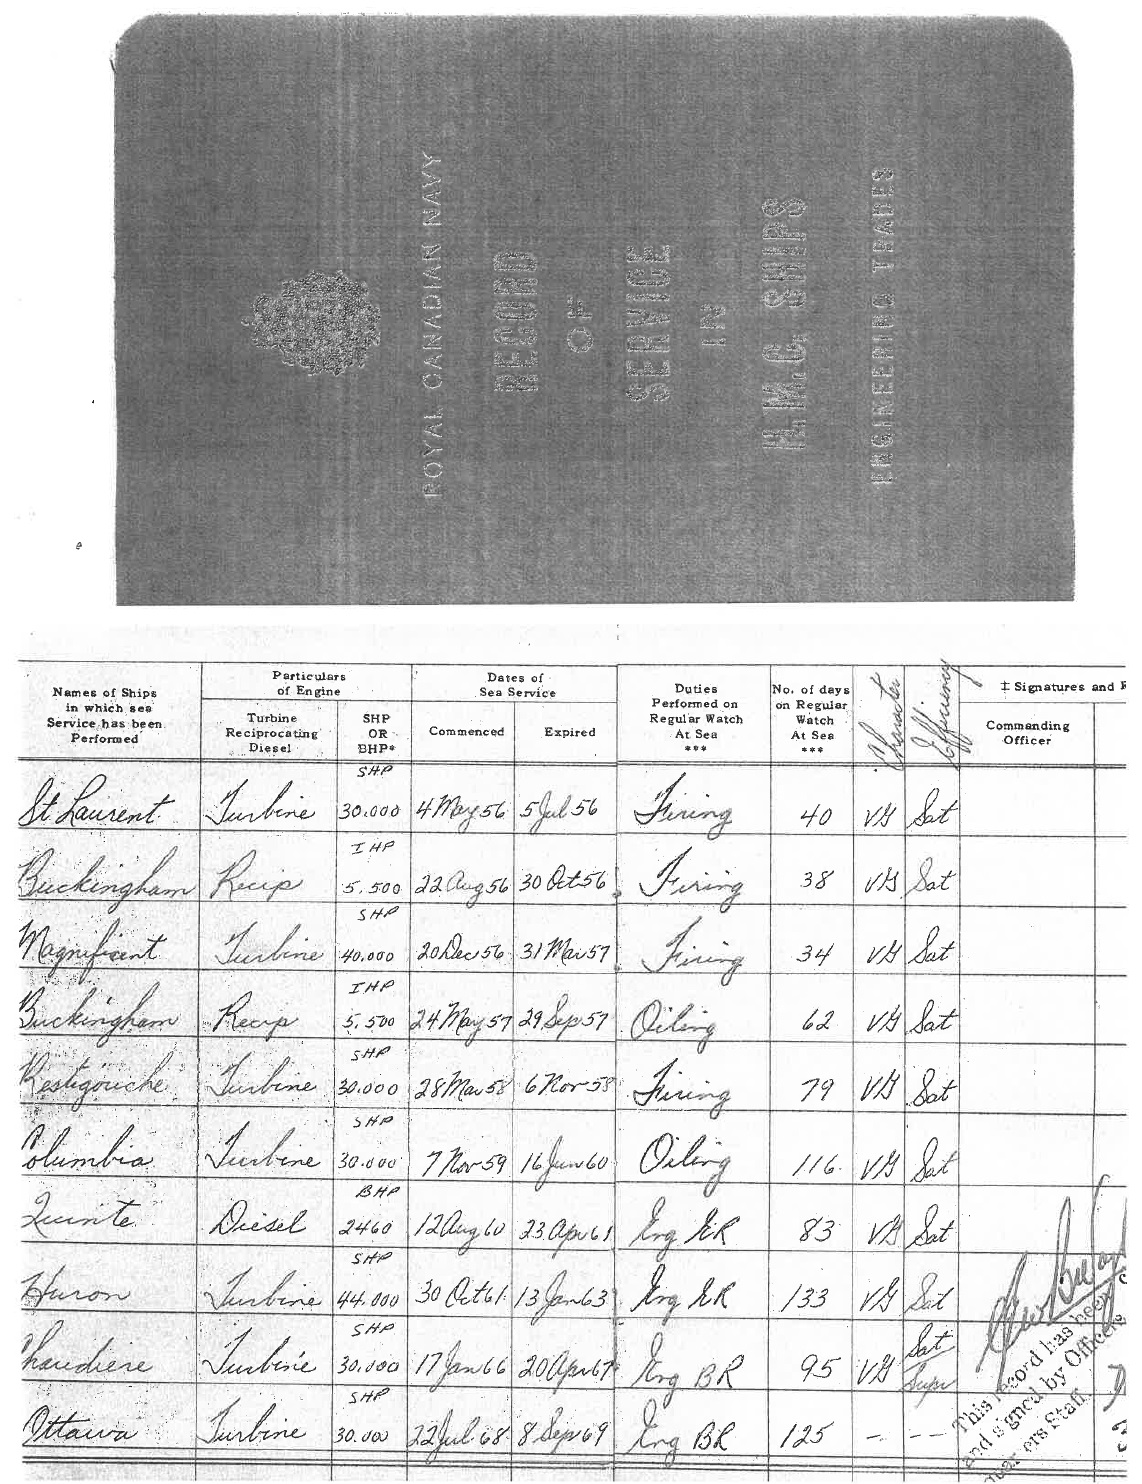 ROYAL CANADIAN NAVY
RECORD
OF
SERVICE
IN
H.M.C. SHIPS
ENGINEERING TRADES
Names of Ships in which sea Service has been Performed
Particulars of Engine
Turbine Reciprocating Diesel
SHP OR BHP*
Dates of Sea Service
Commenced
Expired
Duties Performed on Regular Watch At Sea ***
No. of days on Regular Watch At Sea ***
Character
Efficiency
‡ Signatures and
Commanding Officer
St Laurent Turbine SHP 30.000 4 May 56 5 Jul 56 Firing 40 VG Sat
Buckingham Recip IHP 5.500 22 Aug 56 30 Oct 56 Firing 38 VG Sat
Magnificent Turbine SHP 40.000 20 Dec 56 31 Mar 57 Firing 34 VG Sat
Buckingham Recip IHP 5.500 24 May 57 29 Sep 57 Oiling 62 VG Sat
Restigouche Turbine SHP 30.000 28 Mar 58 6 Nov 58 Firing 79 VG Sat
Columbia Turbine SHP 30.000 7 Nov 59 16 Jun 60 Oiling 116 VG Sat
Quinte Diesel BHP 2460 12 Aug 60 23 Apr 61 Eng ER 83 VG Sat
Huron Turbine SHP 44.000 30 Oct 61 13 Jan 63 Eng ER 133 VG Sat
Chaudiere Turbine SHP 30.000 17 Jan 66 20 Apr 67 Eng BR 95 VG Sat Supr
Ottawa Turbine SHP 30.000 22 Jul 68 8 Sep 69 Eng BR 125 - - - -
This record has been
and signed by Officer
Staff.